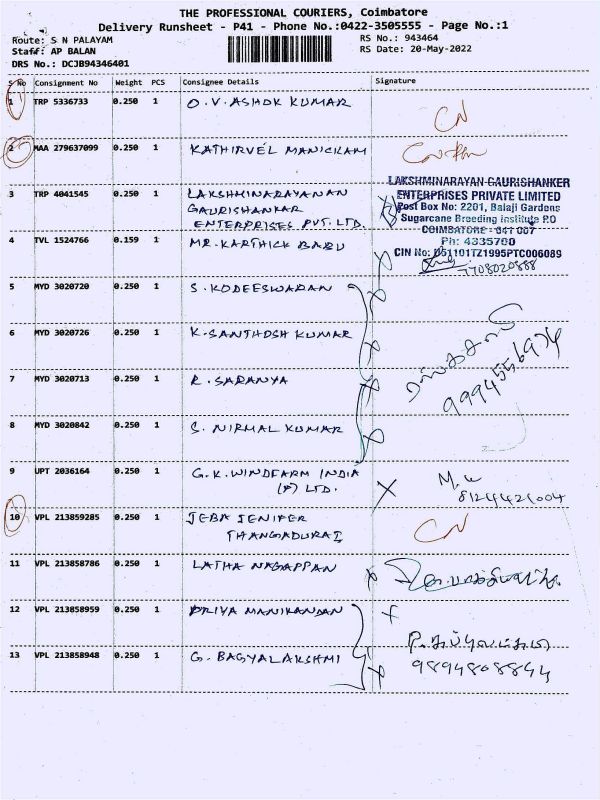 THE PROFESSIONAL COURIERS, Coimbatore
Delivery Runsheet - P41 - Phone No.:0422-3505555 - Page No.:1
Route: S N PALAYAM
RS No.: 943464
Staff: AP BALAN
RS Date: 20-May-2022
DRS No.: DCJB94346401
S No Consignment No Weight PCS Consignee Details Signature
1 TRP 5336733 0.250 1 O.V. ASHOK KUMAR CN
2 MAA 279637099 0.250 1 KATHIRVEL MANICKAM
3 TRP 4041545 0.250 1 LAKSHMINARAYANAN
GAURISHANKAR
ENTERPRISES PVT. LTD.
LAKSHMINARAYAN GAURISHANKER
ENTERPRISES PRIVATE LIMITED
Post Box No: 2201, Balaji Gardens
Sugarcane Breeding Institute P.O
COIMBATORE - 641 007
Ph: 4335760
CIN No: U51101TZ1995PTC006089
7708020888
4 TVL 1524766 0.159 1 MR. KARTHICK BABU
5 MYD 3020720 0.250 1 S. KODEESWARAN
6 MYD 3020726 0.250 1 K. SANTHOSH KUMAR
7 MYD 3020713 0.250 1 R. SARANYA
9994556974
8 MYD 3020842 0.250 1 S. NIRMAL KUMAR
9 UPT 2036164 0.250 1 G.K. WINDFARM INDIA
(P) LTD.
8124421004
10 VPL 213859285 0.250 1 JEBA JENIFER
THANGADURAI
CN
11 VPL 213858786 0.250 1 LATHA NAGAPPAN
12 VPL 213858959 0.250 1 PRIYA MANIKANDAN
13 VPL 213858948 0.250 1 G. BAGYALAKSHMI
9894808844